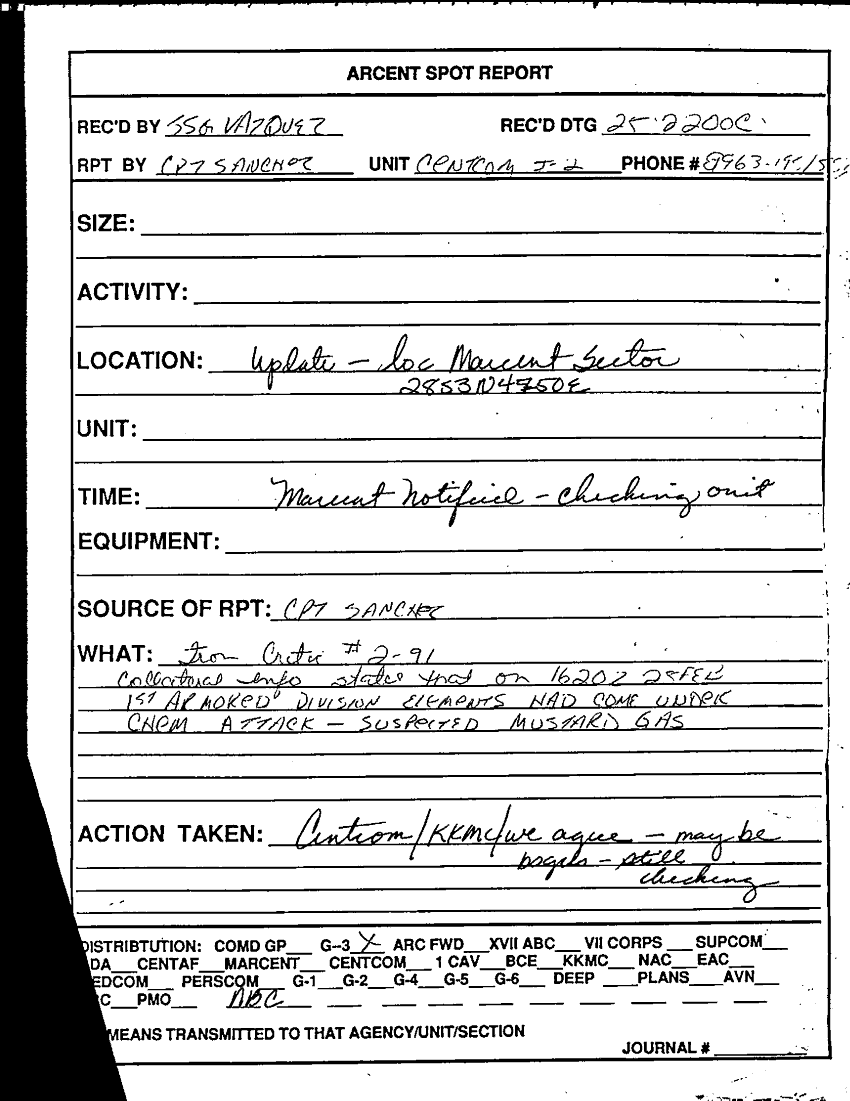 ARCENT SPOT REPORT
REC'D BY SSG VAZQUEZ REC'D DTG 25 2200C
RPT BY CPT SANCHEZ UNIT CENTCOM J-2 PHONE # 8963
SIZE:
ACTIVITY:
LOCATION: Update - loc Marcent Sector
2853N4750E
UNIT:
TIME: Marcent notified - checking unit
EQUIPMENT:
SOURCE OF RPT: CPT SANCHEZ
WHAT: From Critic # 2-91
Collateral info states that on 1620Z 25FEB
1ST ARMORED DIVISION ELEMENTS HAD COME UNDER
CHEM ATTACK - SUSPECTED MUSTARD GAS
ACTION TAKEN: Centcom/KKMC/we agree - may be
- still
checking
DISTRIBTUTION: COMD GP G-3 X ARC FWD XVII ABC VII CORPS SUPCOM
DA CENTAF MARCENT CENTCOM 1 CAV BCE KKMC NAC EAC
EDCOM PERSCOM G-1 G-2 G-4 G-5 G-6 DEEP PLANS AVN
C PMO NBC
MEANS TRANSMITTED TO THAT AGENCY/UNIT/SECTION
JOURNAL #